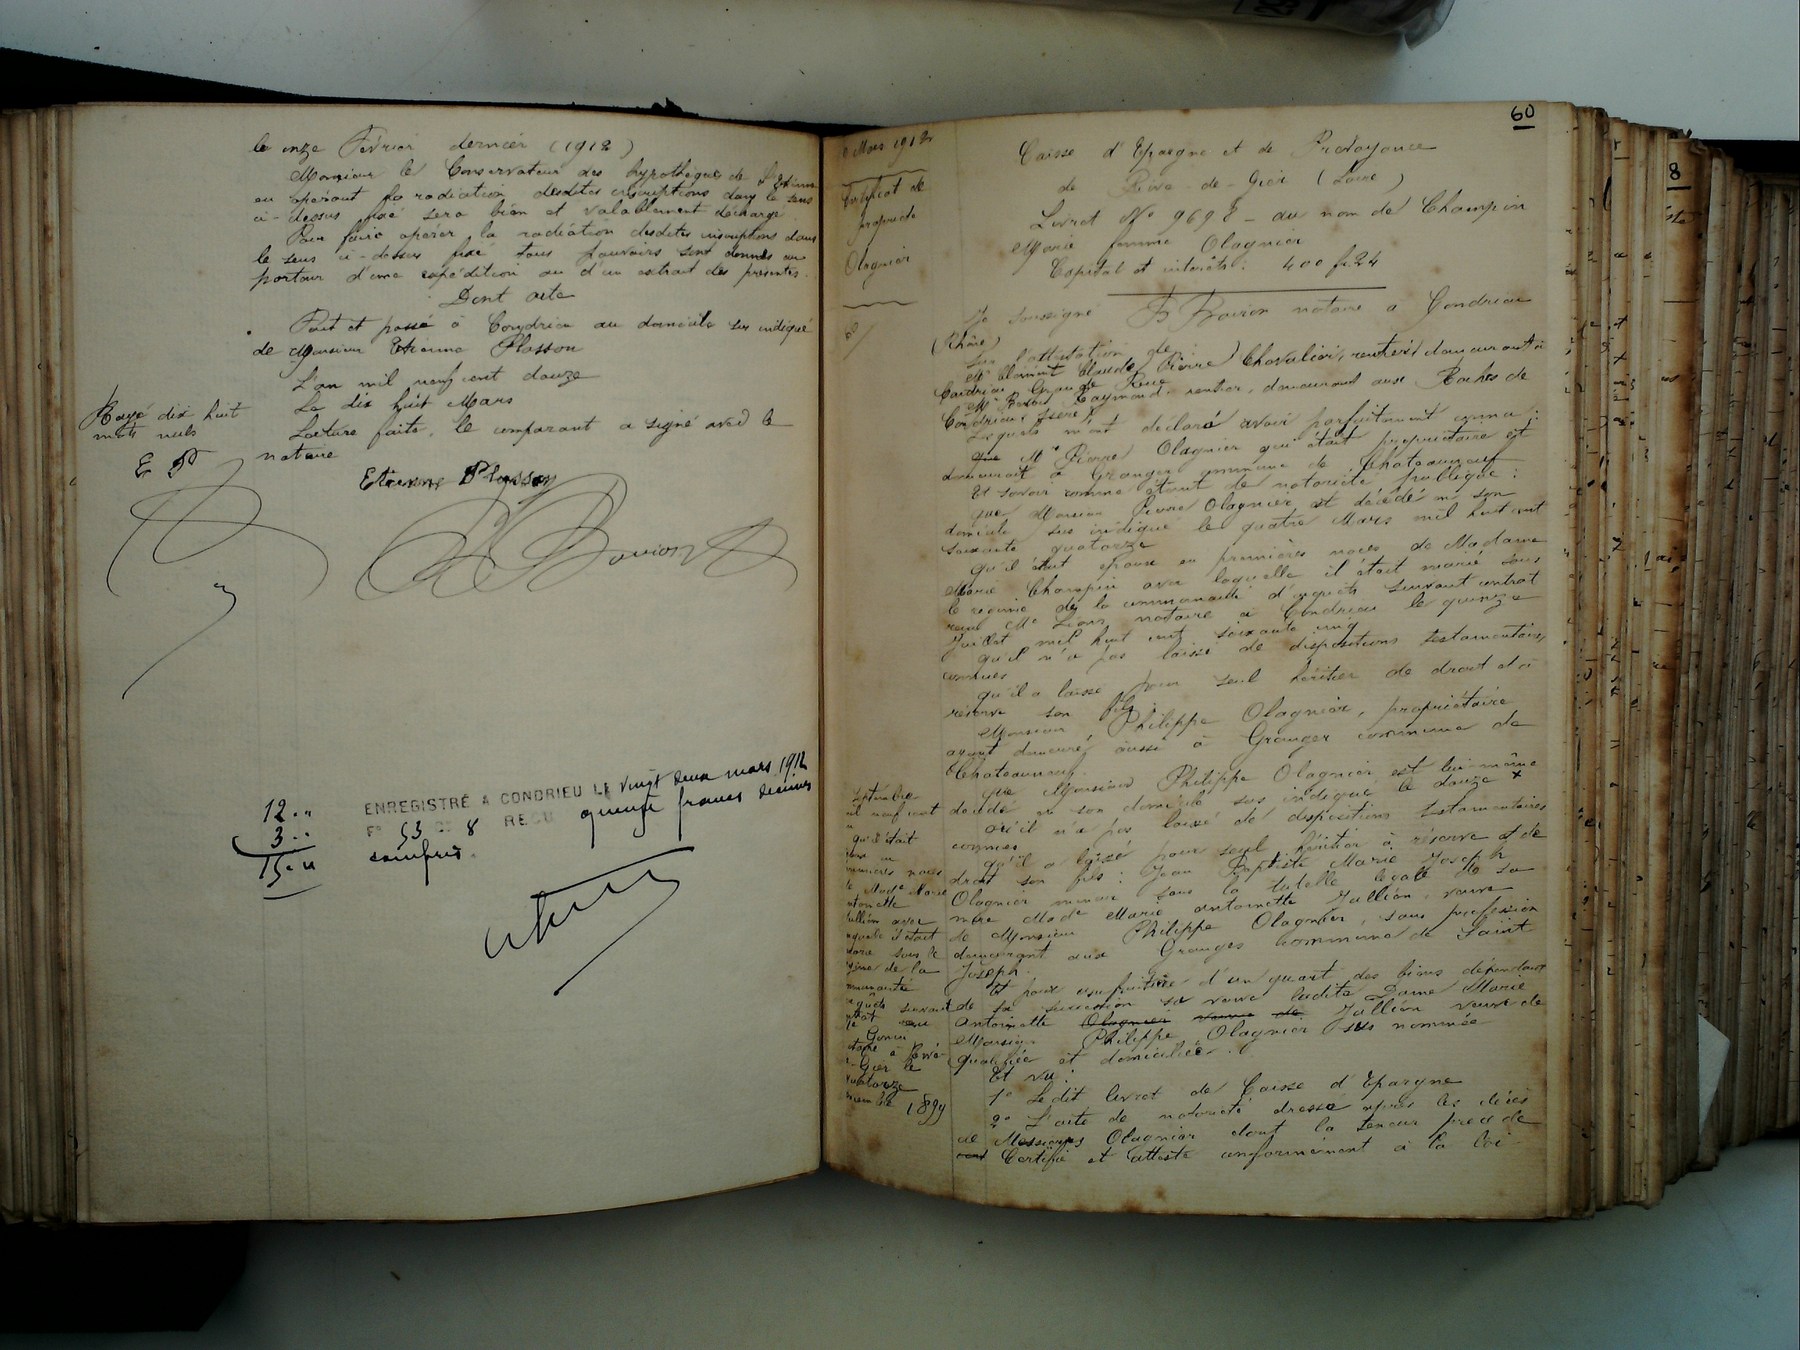 le onze Février dernier (1912)
Monsieur le Conservateur des hypothèques de St Etienne
en opérant la radiation desdites inscriptions dans le sens
ci-dessus fixé sera bien et valablement déchargé
Pour faire opérer la radiation desdites inscriptions dans
le sens ci-dessus fixé tous pouvoirs sont donnés au
porteur d'une expédition ou d'un extrait des présentes.
Dont acte
Fait et passé à Condrieu au domicile sus indiqué
de Monsieur Etienne Plasson
L'an mil neuf cent douze
Le dix huit Mars
Lecture faite, le comparant a signé avec le
notaire
Rayé dix huit
mots nuls
E P
Etienne Plasson
Bouvion
12 "
3 "
15 "
ENREGISTRÉ A CONDRIEU LE vingt deux mars 1912
F° 53 C° 8 REÇU quinze francs décimes
compris.
60
Mars 1912
Certificat de
propriété
Olagnier
Caisse d'Epargne et de Prévoyance
de Rive-de-Gier (Loire)
Livret N° 9698 - au nom de Champin
Marie femme Olagnier
Capital et intérêts : 400 fr.24
Je soussigné notaire à Condrieu
(Rhône)
Sur l'attestation de :
Mr Clément Claude Pierre Chevalier, rentier, demeurant à
Condrieu Grande Rue
Mr Raymond rentier, demeurant aux Roches de
Condrieu (Isère)
Lesquels m'ont déclaré avoir parfaitement connu :
que Mr Pierre Olagnier qui était propriétaire et
demeurait à Granger commune de Chateauneuf
Et savoir comme étant de notoriété publique :
que Monsieur Pierre Olagnier est décédé en son
domicile sus indiqué le quatre Mars mil huit cent
soixante quatorze
qu'il était époux en premières noces de Madame
Marie Champin avec laquelle il était marié sous
le régime de la communauté d'acquêts suivant contrat
reçu Me Lions notaire à Condrieu le quinze
Juillet mil huit cent soixante cinq
qu'il n'a pas laissé de dispositions testamentaires
connues
qu'il a laissé pour seul héritier de droit et à
réserve son fils :
Monsieur Philippe Olagnier, propriétaire
ayant demeuré aussi à Granger commune de
Chateauneuf.
que Monsieur Philippe Olagnier est lui-même
décédé en son domicile sus indiqué le douze x
qu'il n'a pas laissé de dispositions testamentaires
connues
qu'il a laissé pour seul héritier à réserve et de
droit son fils : Jean Baptiste Marie Joseph
Olagnier mineur sous la tutelle légale de sa
mère Made Marie Antoinette Jullien, veuve
de Monsieur Philippe Olagnier, sans profession
demeurant aux Granges commune de Saint
Joseph.
Et pour usufruitière d'un quart des biens dépendant
de sa succession sa veuve ladite Dame Marie
Antoinette Olagnier veuve de Jullien veuve de
Monsieur Philippe Olagnier sus nommée
qualifiée et domiciliée.
Et vu :
1° Ledit livret de Caisse d'Epargne
2° L'acte de notoriété dressé après les décès
de Messieurs Olagnier dont la teneur précède
Certifie et atteste conformément à la loi
septembre
mil neuf cent
qu'il était
époux en
premières noces
de Made Marie
Antoinette
Jullien avec
laquelle il était
marié sous le
régime de la
communauté
d'acquêts suivant
contrat reçu
Me Gonin
notaire à Rive-
de-Gier le
quatorze
1899